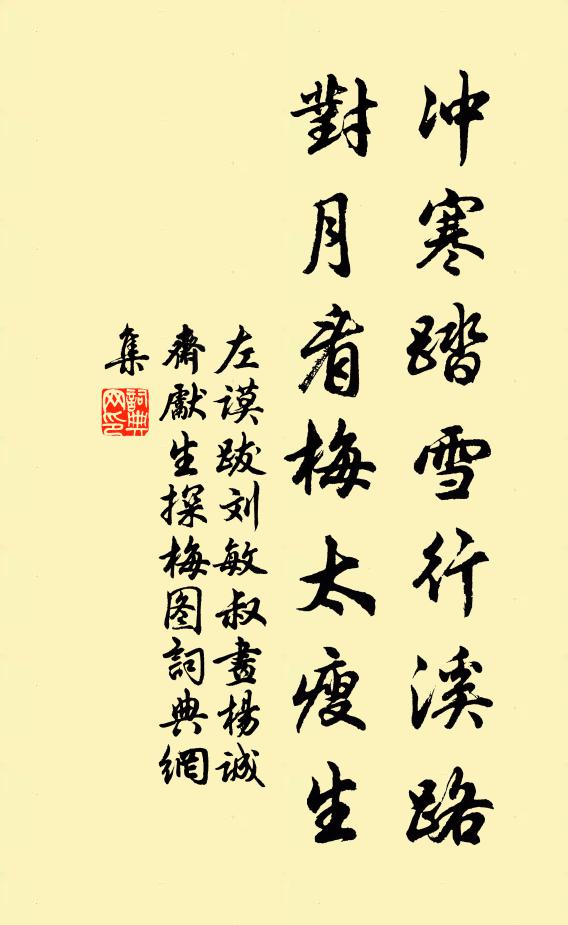 冲寒踏雪行溪路
對月看梅太瘦生
左謨跋刘敏叔畫楊诚
齋獻生探梅图詞典網
集
詞典网印